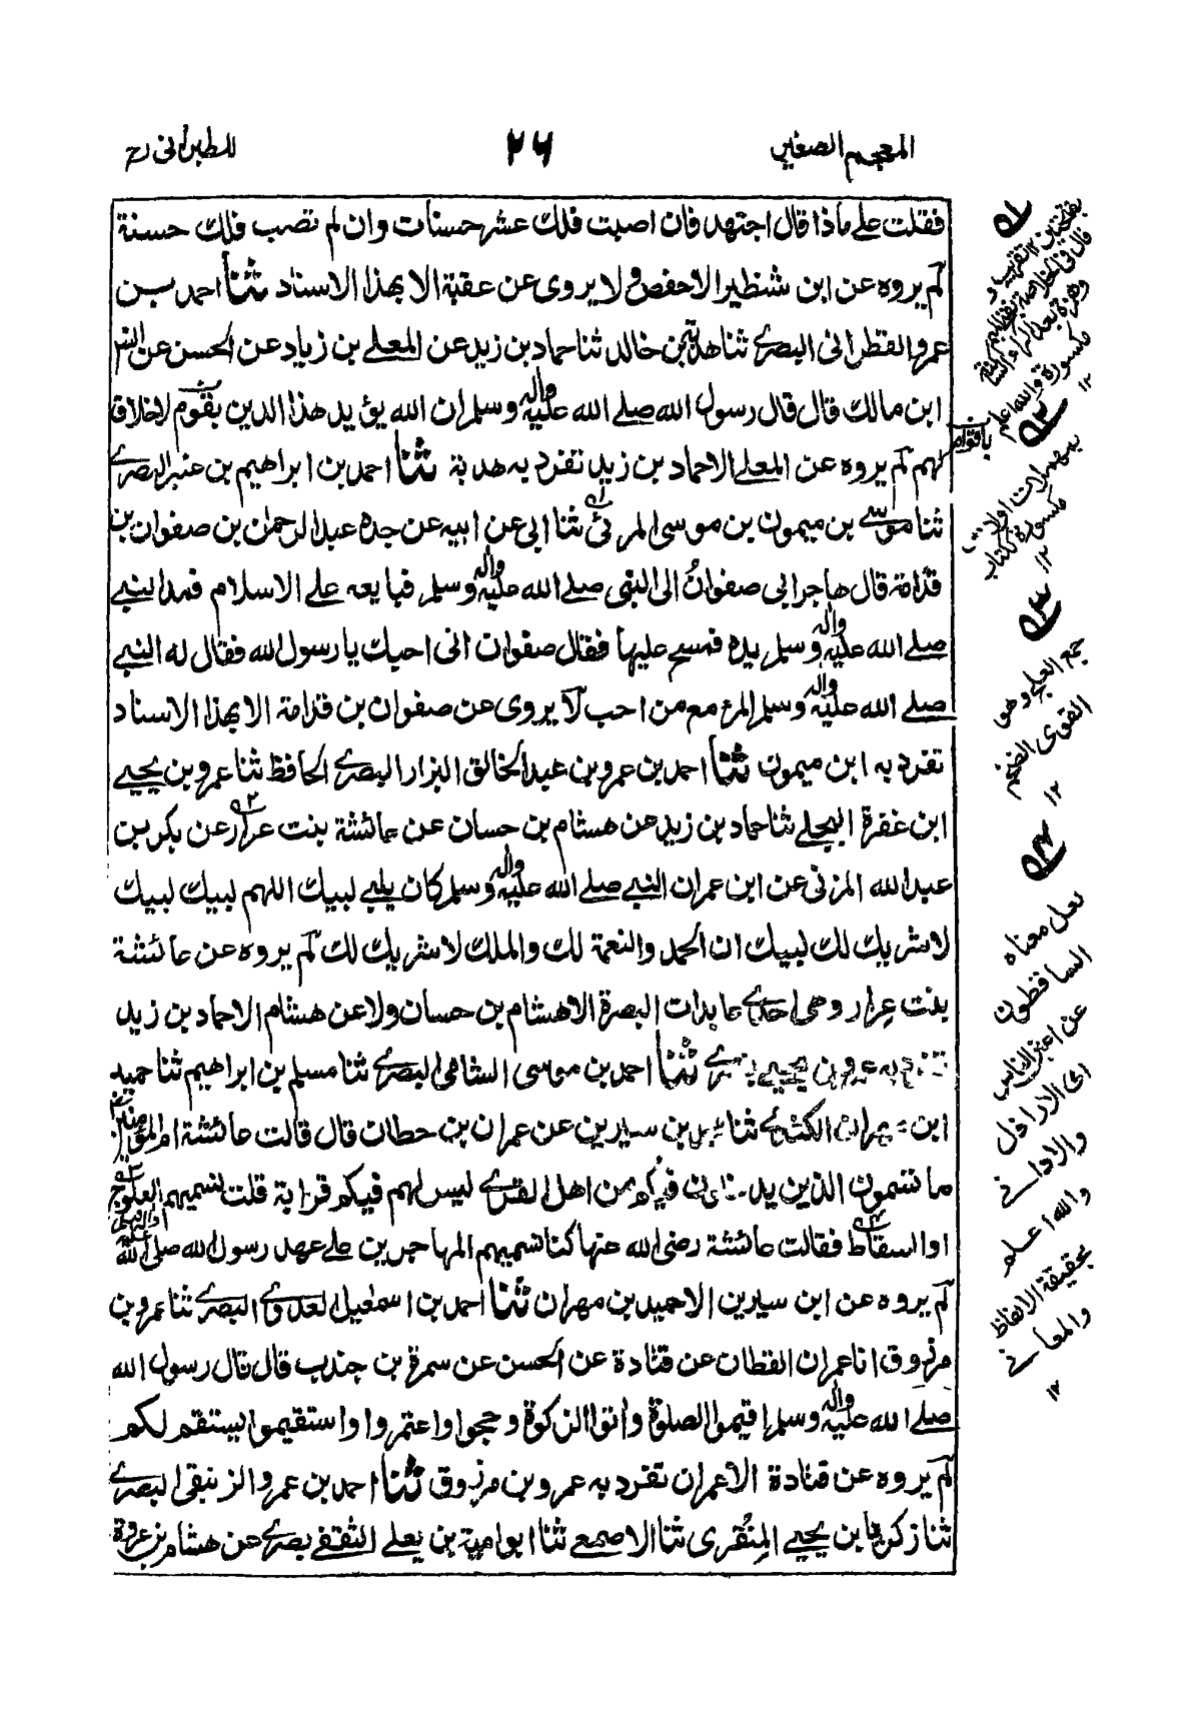 المعجم الصغير
٢٦
للطبرانى رح
فقلت على ماذا قال اجتهد فان اصبت فلك عشر حسنات وان لم تصب فلك حسنة
لم يروه عن ابن شنظير الا حفص ولا يروى عن عقبة الا بهذا الاسناد ثنا احمد بن
عمرو القطرانى البصرى ثنا هدبة بن خالد ثنا حماد بن زيد عن المعلى بن زياد عن الحسن عن انس
ابن مالك قال قال رسول الله صلى الله عليه واله وسلم ان الله يؤيد هذا الدين بقوم لاخلاق
لهم لم يروه عن المعلى الا حماد بن زيد تفرد به هدبة ثنا احمد بن ابراهيم بن عنبر البصرى
ثنا موسى بن ميمون بن موسى المرئى ثنا ابى عن ابيه عن جده عبد الرحمان بن صفوان بن
قدامة قال هاجر ابى صفوان الى النبى صلى الله عليه واله وسلم فبايعه على الاسلام فمد النبى
صلى الله عليه واله وسلم يده فمسح عليها فقال صفوان انى احبك يا رسول الله فقال له النبى
صلى الله عليه واله وسلم المرء مع من احب لا يروى عن صفوان بن قدامة الا بهذا الاسناد
تفرد به ابن ميمون ثنا احمد بن عمرو بن عبد الخالق البزار البصرى الحافظ ثنا عمرو بن يحيى
ابن غفرة البجلى ثنا حماد بن زيد عن هشام بن حسان عن عائشة بنت عرار عن بكر بن
عبد الله المزنى عن ابن عمر ان النبى صلى الله عليه واله وسلم كان يلبى لبيك اللهم لبيك لبيك
لا شريك لك لبيك ان الحمد والنعمة لك والملك لا شريك لك لم يروه عن عائشة
بنت عرار وهى احدى عابدات البصرة الا هشام بن حسان ولا عن هشام الا حماد بن زيد
تفرد به عمرو بن يحيى ثنا احمد بن موسى الشامى البصرى ثنا مسلم بن ابراهيم ثنا حميد
ابن مهران الكندى ثنا محمد بن سيرين عن عمران بن حطان قال قالت عائشة ام المؤمنين
ما تسمون الذين فيكم من اهل القرى ليس لهم فيكم قرابة قلت نسميهم العلوج
او السقاط فقالت عائشة رضى الله عنها كنا نسميهم المهاجرين على عهد رسول الله صلى الله
لم يروه عن ابن سيرين الا حميد بن مهران ثنا احمد بن اسمعيل العدوى البصرى ثنا عمرو بن
مرزوق انا عمران القطان عن قتادة عن الحسن عن سمرة بن جندب قال قال رسول الله
صلى الله عليه واله وسلم اقيموا الصلوة واتوا الزكوة وحجوا واعتمروا واستقيموا يستقم لكم
لم يروه عن قتادة الا عمران تفرد به عمرو بن مرزوق ثنا احمد بن عمرو الزئبقى البصرى
ثنا زكريا بن يحيى المنقرى ثنا الاصمعى ثنا ابو امية بن يعلى الثقفى بصرى عن هشام بن عروة
جمع العلج وهو
القوى الضخم
١٢
لعل معناه
الساقطون
عن اعين الناس
الى الاراذل
والادانى
والله اعلم
بحقيقة الالفاظ
والمعانى
١٢